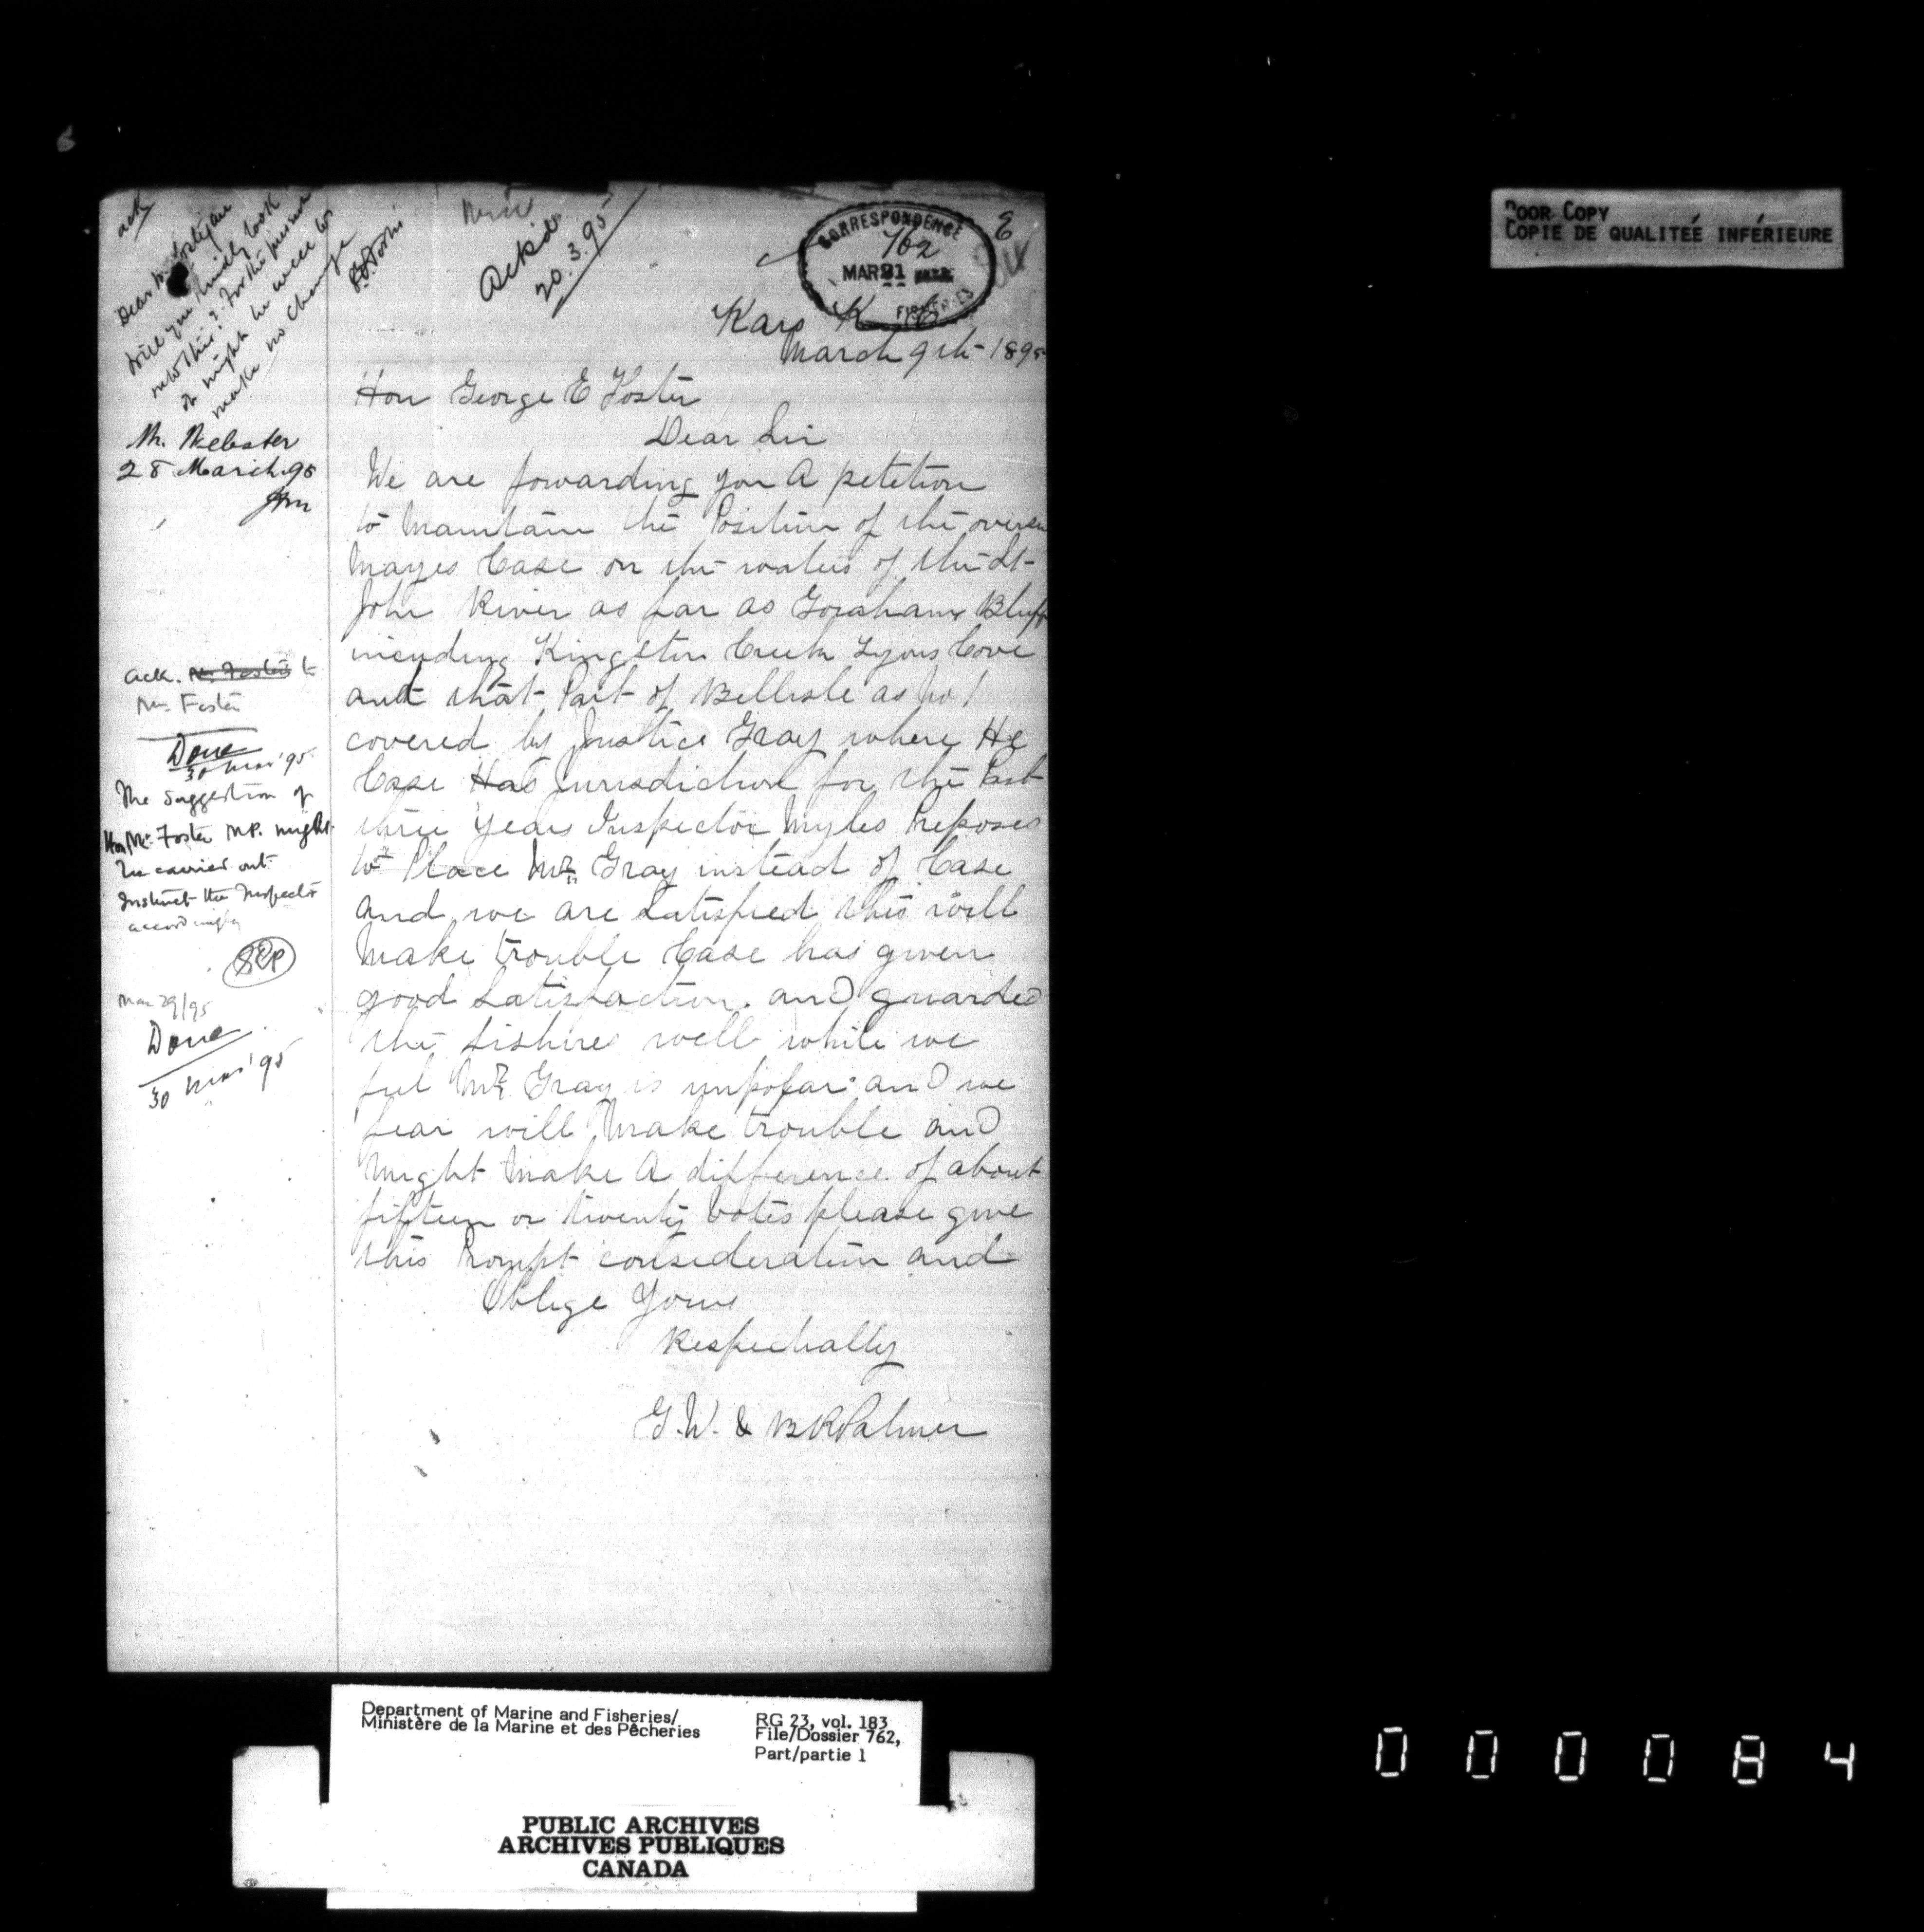 POOR COPY
COPIE DE QUALITEÉ INFÉRIEURE
CORRESPONDENCE
762
MAR 21
FISHERIES
E
ack
Dear Mr
Will you kindly look
into this? For the present
it might be well to
make no change
Ackd
20.3.95
Mr. Webster
28 March 95
ack. Mr. Foster to
Mr. Foster
Done
30 Mar '95
The suggestion of
Hon Mr. Foster M.P. might
be carried out.
Instruct the Inspector
accordingly
Mar 29/95
Done
30 Mar '95
Kars K
March 9th 1895
Hon George E Foster
Dear Sir
We are forwarding you A petetion
to Maintain the Position of the overseer
Mayes Case on the waters of the St
John River as far as Gorahams Bluff
incuding Kingston Creek Lyons Cove
and that Part of Bellisle as not
covered by Justice Gray where He
Case Has Jurisdiction for the Past
three years Inspector Myles Preposes
to Place Mr. Gray instead of Case
and we are Satisfied this will
Make trouble Case has given
good Satisfaction and guarded
the fishires well while we
feel Mr. Gray is unpofar and we
fear will Make trouble and
Might Make A difference of about
fifteen or twenty Votes please give
this Prompt consideration and
Oblige Yours
Respectially
G.W. & B R Palmer
Department of Marine and Fisheries/
Ministère de la Marine et des Pêcheries
RG 23, vol. 183
File/Dossier 762,
Part/partie 1
PUBLIC ARCHIVES
ARCHIVES PUBLIQUES
CANADA
000084